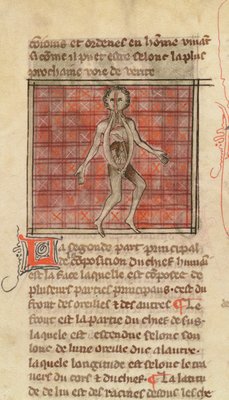 disions et ordenes en home vivant
si come il puet estre selonc la plus
prochaine voie de verite
La segonde part principal
de composition du chief humai
est la face laquelle est composee de
pluseurs parties principaus. cest du
front des oreilles et des autres ¶ Le
front est la partie du chief de sus
laquele est estendue selonc son
lonc de lune oreille duc a lautre.
laquele longitude est selonc le tra
uers du cors et du chief. ¶ la latitu
de de lui est des racines desous les che